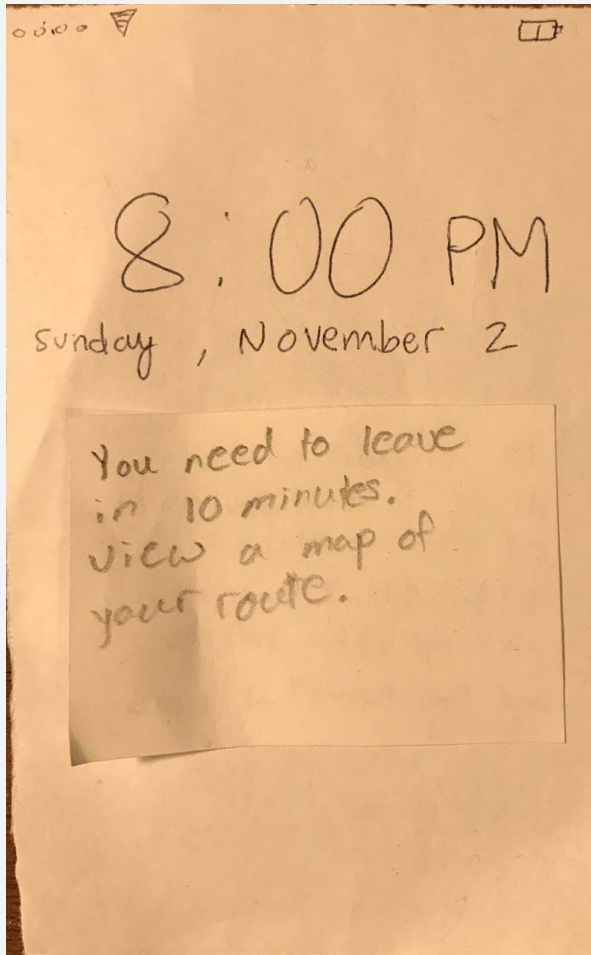 8:00 PM
sunday, November 2
You need to leave
in 10 minutes.
view a map of
your route.